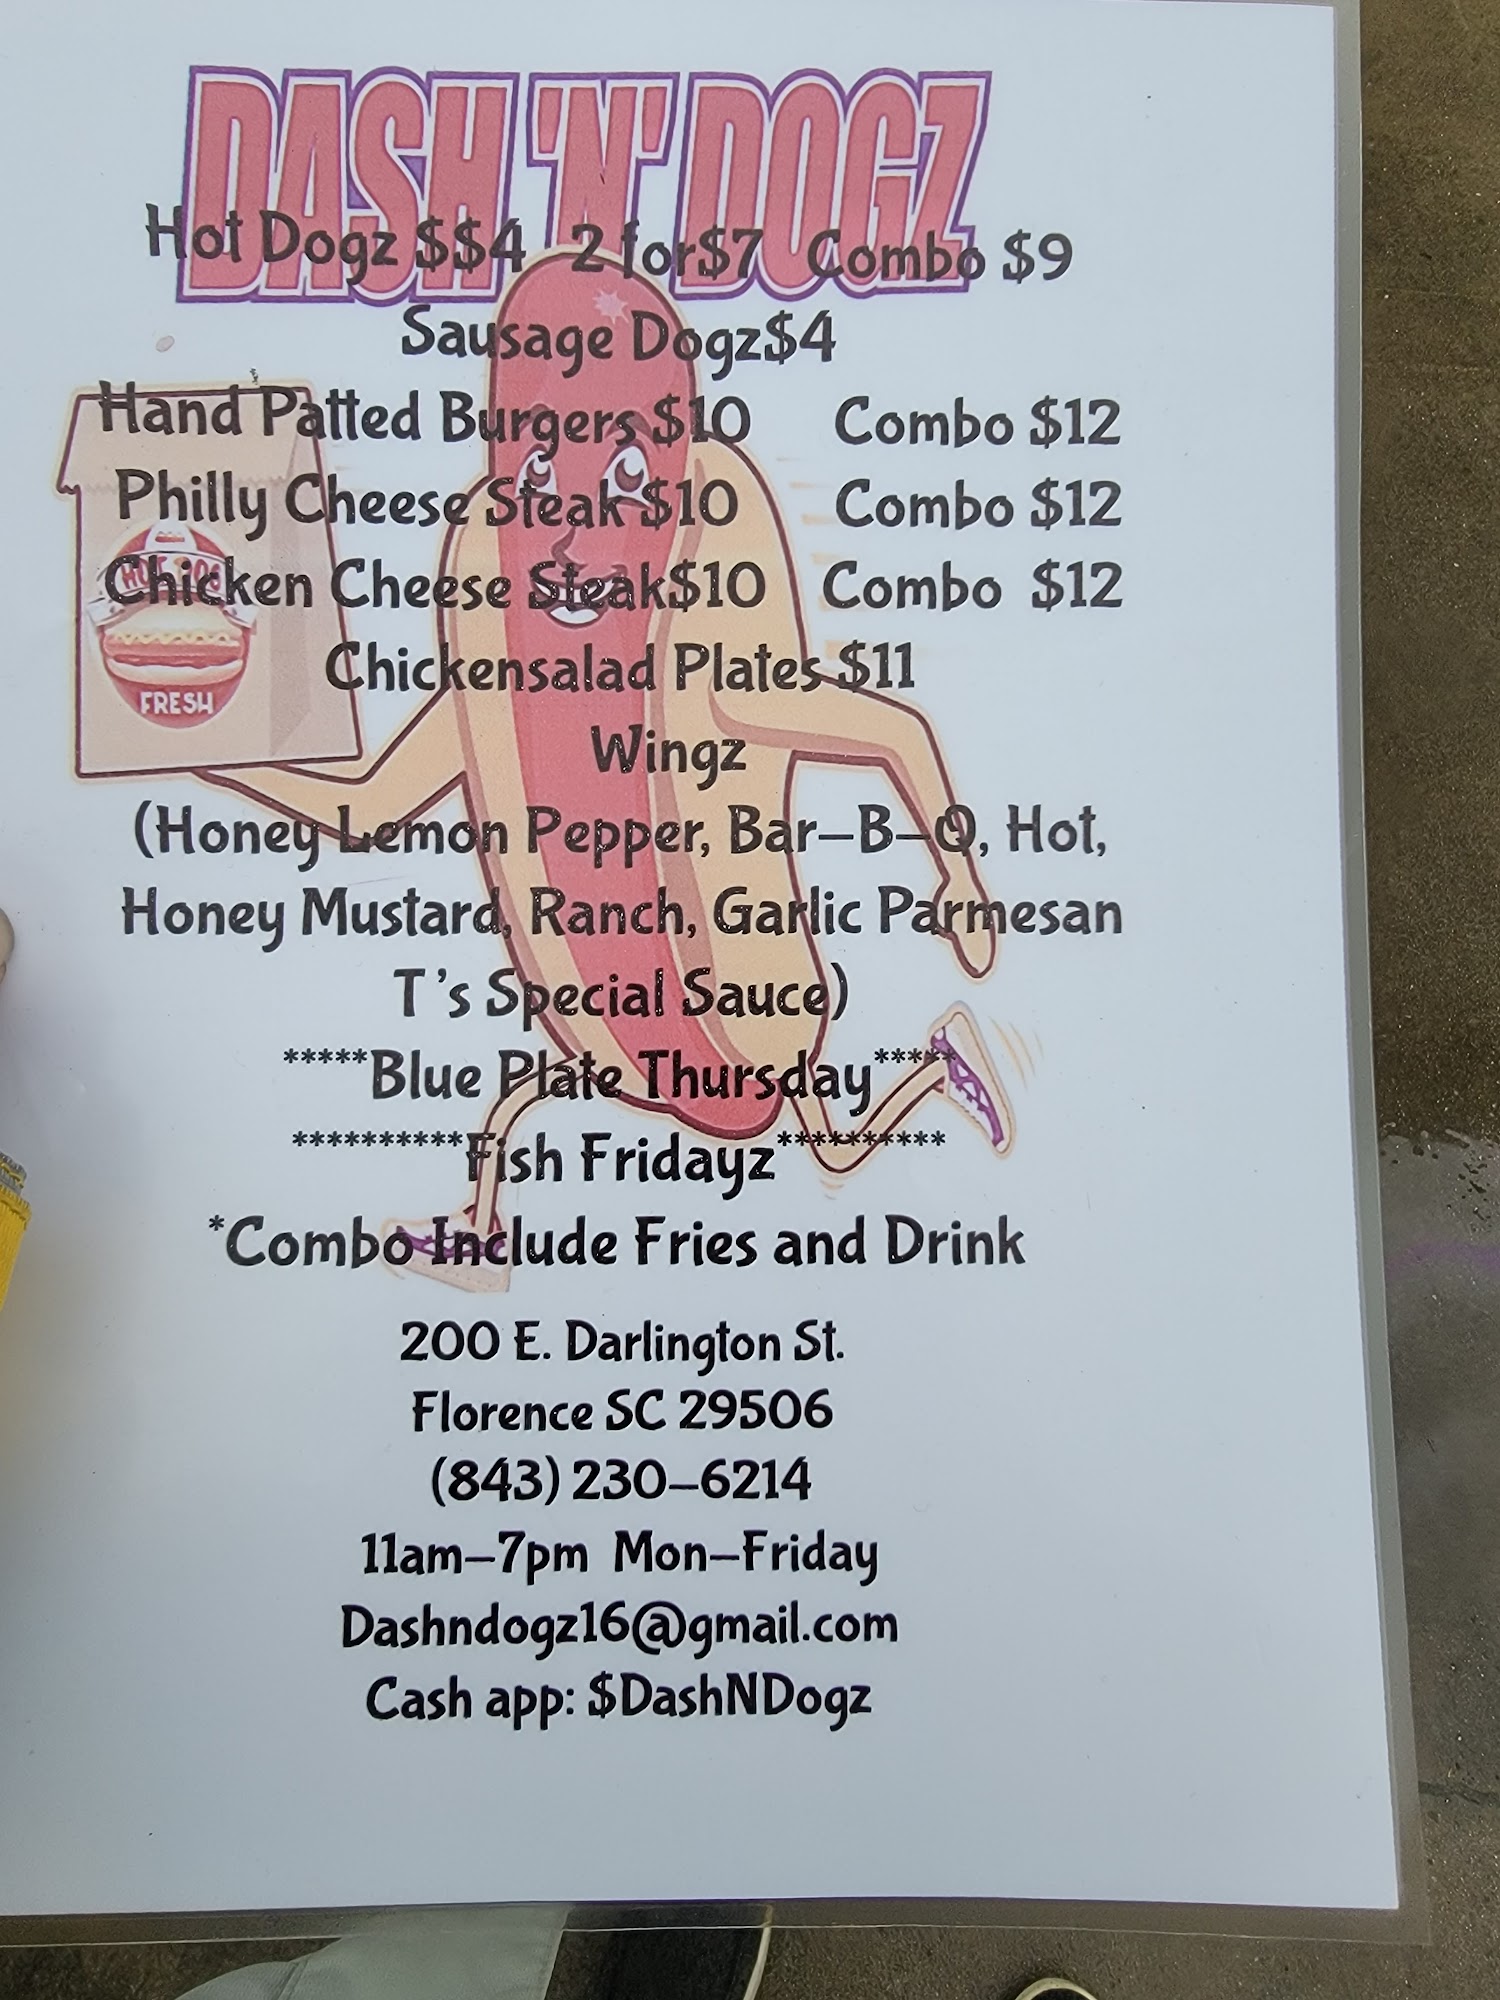 DASH 'N' DOGZ
Hot Dogz $$4 2 for$7 Combo $9
Sausage Dogz$4
Hand Patted Burgers $10 Combo $12
Philly Cheese Steak $10 Combo $12
Chicken Cheese Steak$10 Combo $12
HOT DOG
FRESH
Chickensalad Plates $11
Wingz
(Honey Lemon Pepper, Bar-B-Q, Hot,
Honey Mustard, Ranch, Garlic Parmesan
T's Special Sauce)
*****Blue Plate Thursday*****
**********Fish Fridayz**********
*Combo Include Fries and Drink
200 E. Darlington St.
Florence SC 29506
(843) 230-6214
11am-7pm Mon-Friday
Dashndogz16@gmail.com
Cash app: $DashNDogz